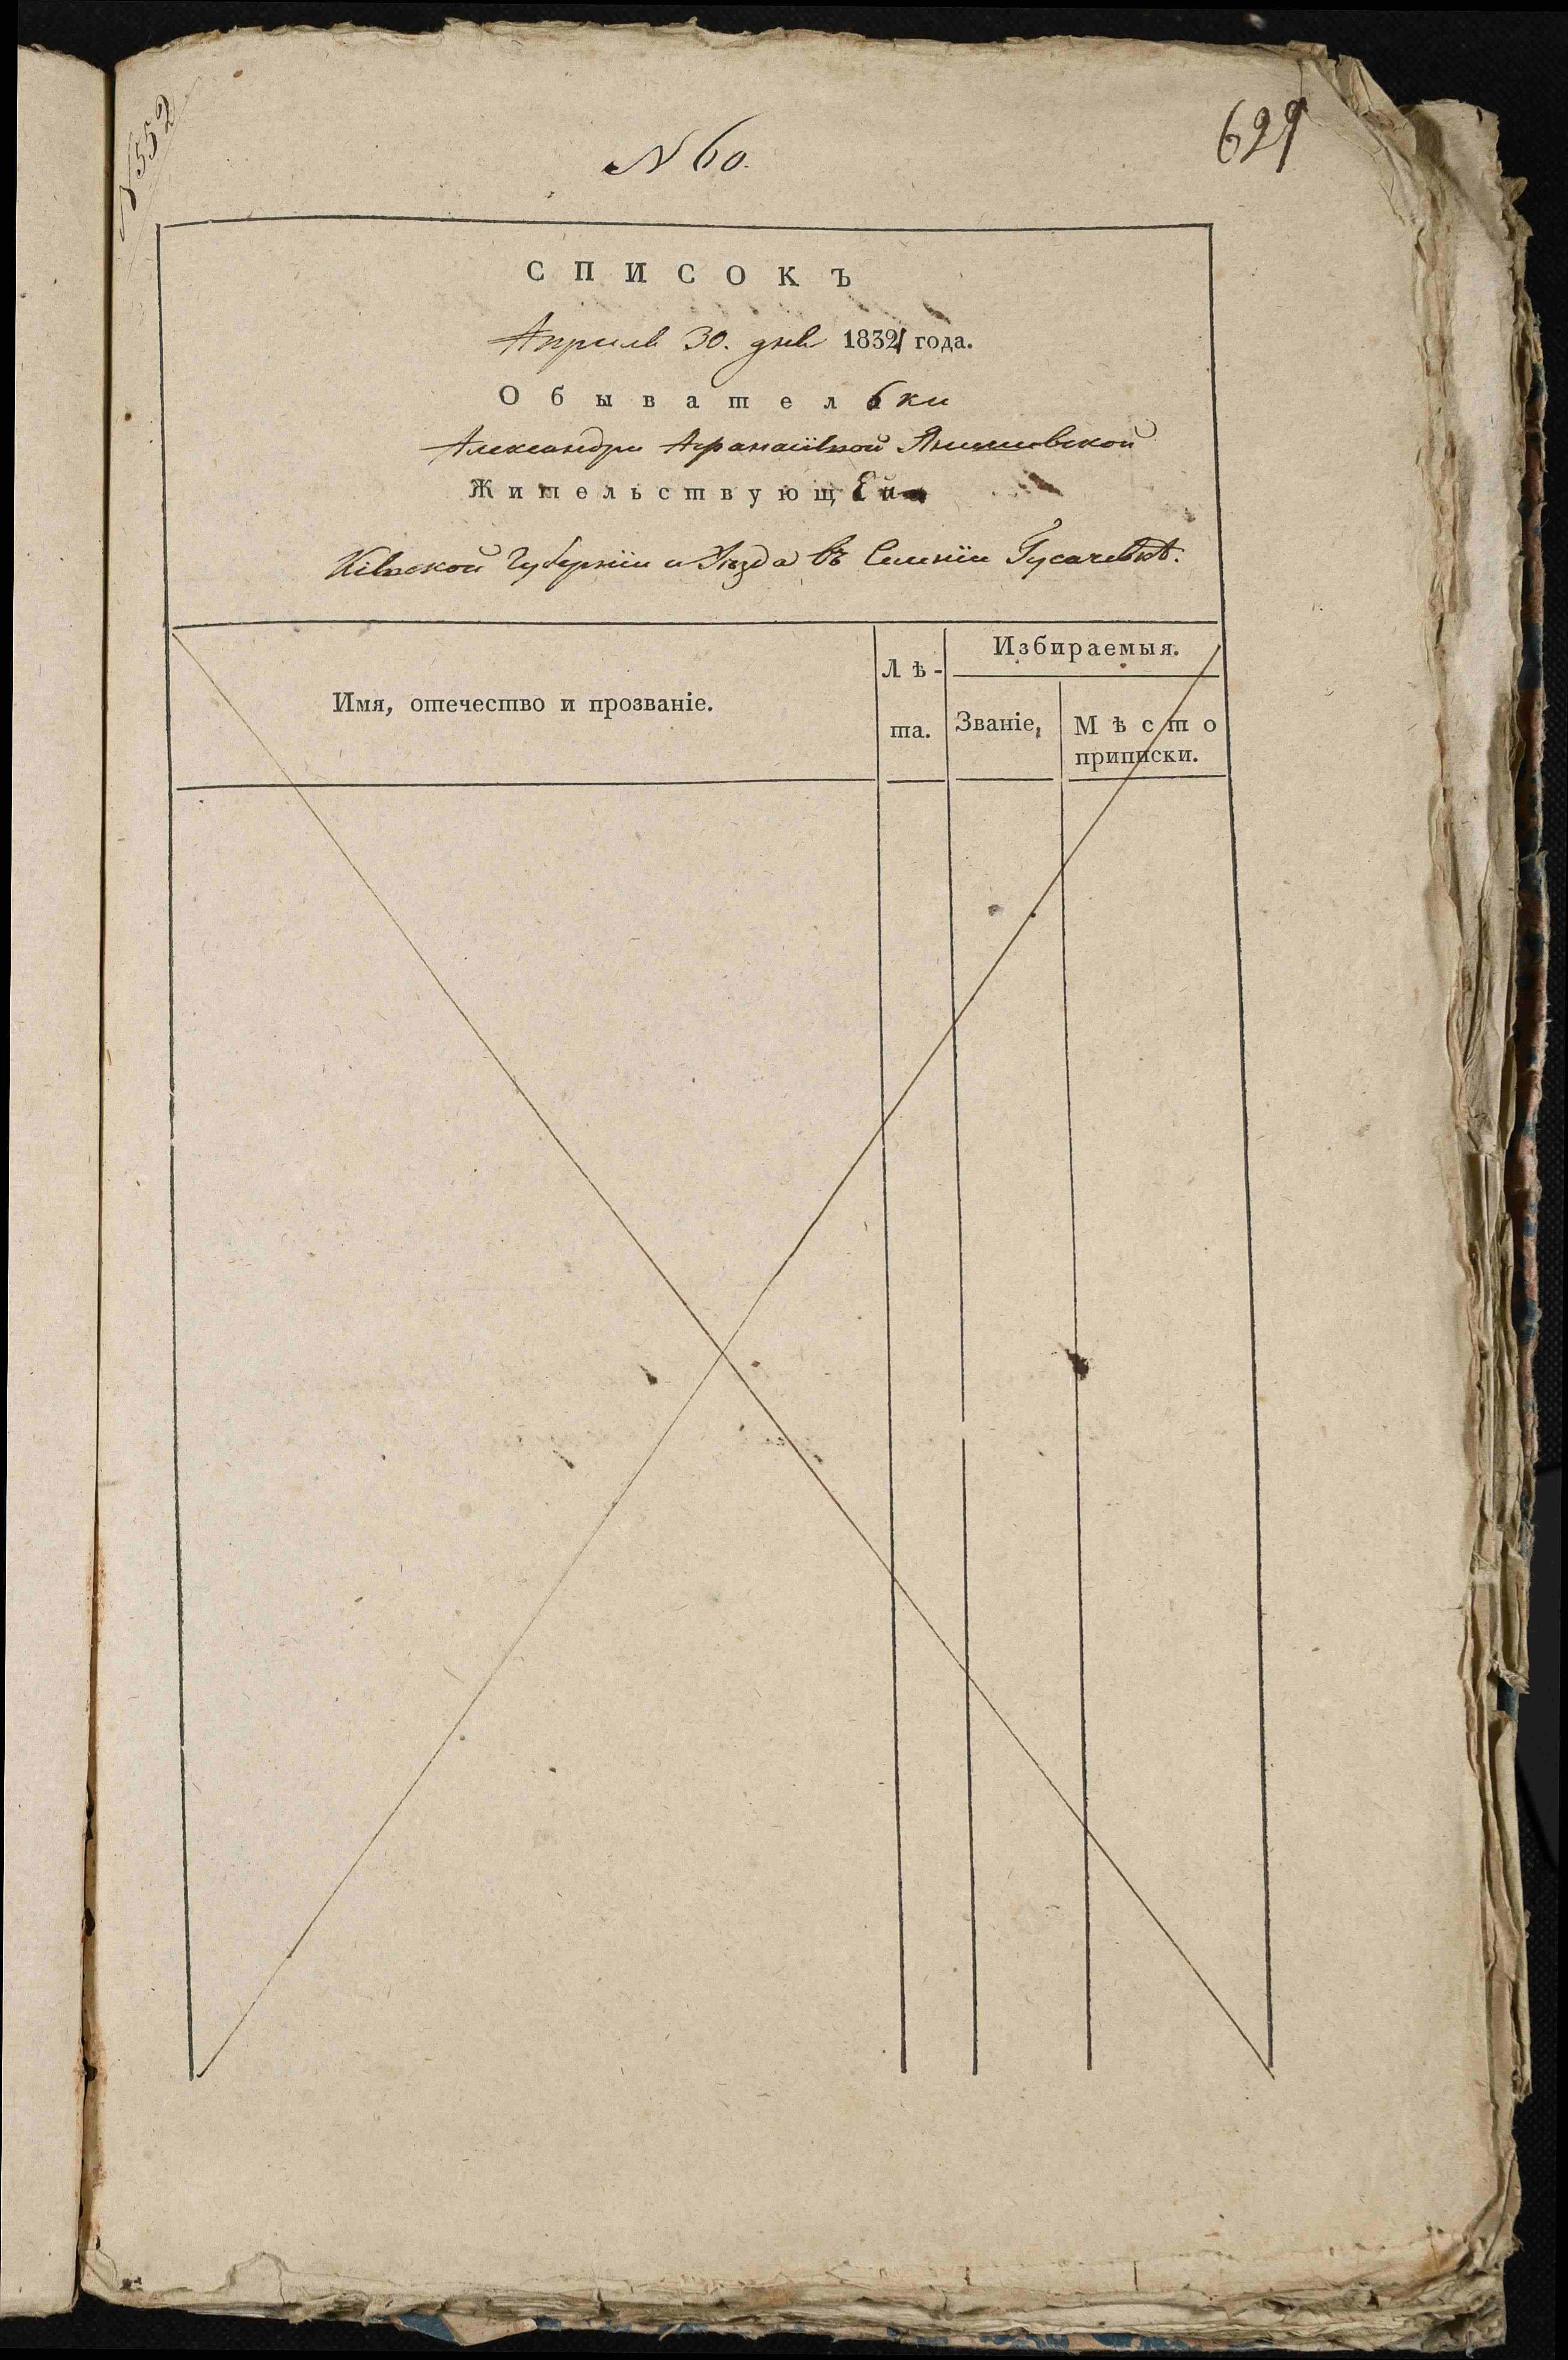 N 552
N 60.
629
СПИСОКЪ
Апреля 30. дня 1832 года.
Обывательки
Александры Афанасіевой
Жительствующей
Кіевской Губерніи и Уѣзда въ Селеніи Гусачевкѣ.
Имя, отечество и прозваніе.
Лѣ-
та.
Избираемыя.
Званіе,
Мѣсто
приписки.